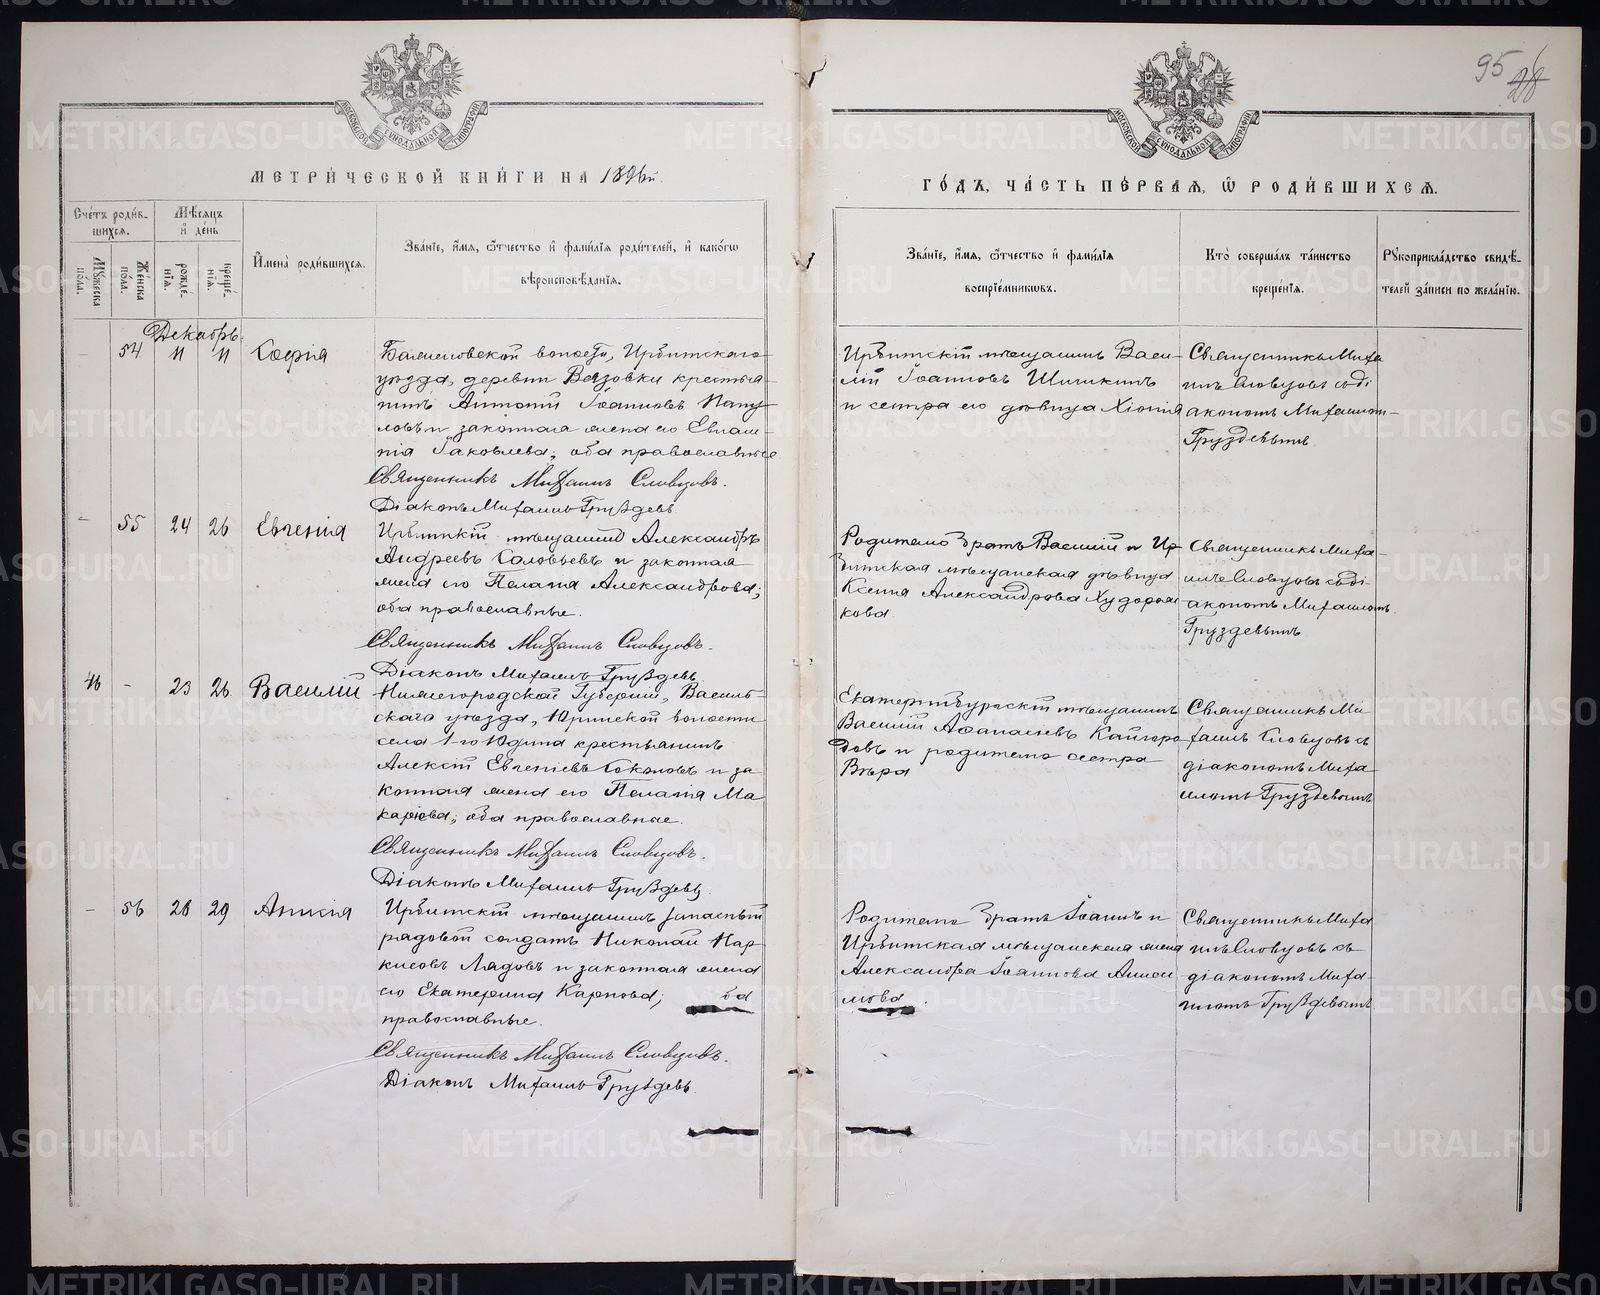 95 28
МОСКОВСКОЙ СѴНОДАЛЬНОЙ ТИПОГРАФІИ
МОСКОВСКОЙ СѴНОДАЛЬНОЙ ТИПОГРАФІИ
МЕТРИ́ЧЕСКОЙ КНИ́ГИ НА 1896й
ГО́ДЪ, ЧА́СТЬ ПЕ́РВАЯ, Ѡ҆ РОДИ́ВШИХСѦ.
Сче́тъ роди́в-
шихся.
Мѣ́сяцъ
и҆ де́нь
Му́жеска
по́ла.
Же́нска
по́ла.
рожде́-
нїѧ.
креще́-
нїѧ.
И҆мена̀ роди́вшихсѧ.
Зва́нїе, и҆́мѧ, ѻ҆́тчество и҆ фами́лїѧ роди́телей, и҆ како́гѡ
вѣроисповѣ́данїѧ.
Зва́нїе, и҆́мѧ, ѻ҆́тчество и҆ фами́лїѧ
воспрїе́мникѡвъ.
Кто̀ соверша́лъ та́инство
креще́нїѧ.
Рꙋкоприкла́дство свидѣ́-
телей за́писи по жела́нїю.
Декабрь.
- 54 11 11 Софія
волости, Ирбитскаго
уѣзда, деревни Вязовки крестья-
нинъ Антоній Іоанновъ Папу-
ловъ и законная жена его Евгаи-
нія Іаковлева; оба православные
Священникъ Михаилъ Словцовъ.
Діаконъ Михаилъ Груздевъ
Ирбитскій мѣщанинъ Васи-
лій Іоанновъ Шишкинъ
и сестра его дѣвица Хіонія
Священникъ Миха
илъ Словцовъ съ ді
акономъ Михаиломъ
Груздевымъ
- 55 24 26 Евгенія
Ирбитскій мѣщанинъ Александръ
Андреевъ Соловьевъ и законная
жена его Пелагія Александрова;
оба православные.
Священникъ Михаилъ Словцовъ.
Діаконъ Михаилъ Груздевъ
Родителя братъ Василій и Ир-
битская мѣщанская дѣвица
Ксенія Александрова Худорож
кова
Священникъ Миха-
илъ Словцовъ съ ді-
акономъ Михаиломъ
Груздевымъ
46 - 25 26 Василій
Нижегородской Губерніи, Василь-
скаго уѣзда, Юринской волости
села 1-го Юдина крестьянинъ
Алексій Евгеніевъ Соколовъ и за
конная жена его Пелагія Ма
каріева; оба православные.
Священникъ Михаилъ Словцовъ.
Діаконъ Михаилъ Груздевъ
Екатеринбургскій мѣщанинъ
Василій Афанасіевъ Кайгоро-
довъ и родителя сестра
Вѣра
Священникъ Ми-
хаилъ Словцовъ съ
діакономъ Миха-
иломъ Груздевымъ
- 56 28 29 Анисія
Ирбитскій мѣщанинъ запасный
рядовой солдатъ Николай Нар-
кисовъ Лядовъ и законная жена
его Екатерина Карпова; оба
православные.
Священникъ Михаилъ Словцовъ.
Діаконъ Михаилъ Груздевъ
Родителя братъ Іоаннъ и
Ирбитская мѣщанская жена
Александра Іоаннова Аниси
мова.
Священникъ Миха
илъ Словцовъ съ
діакономъ Миха-
иломъ Груздевымъ
METRIKI.GASO-URAL.RU